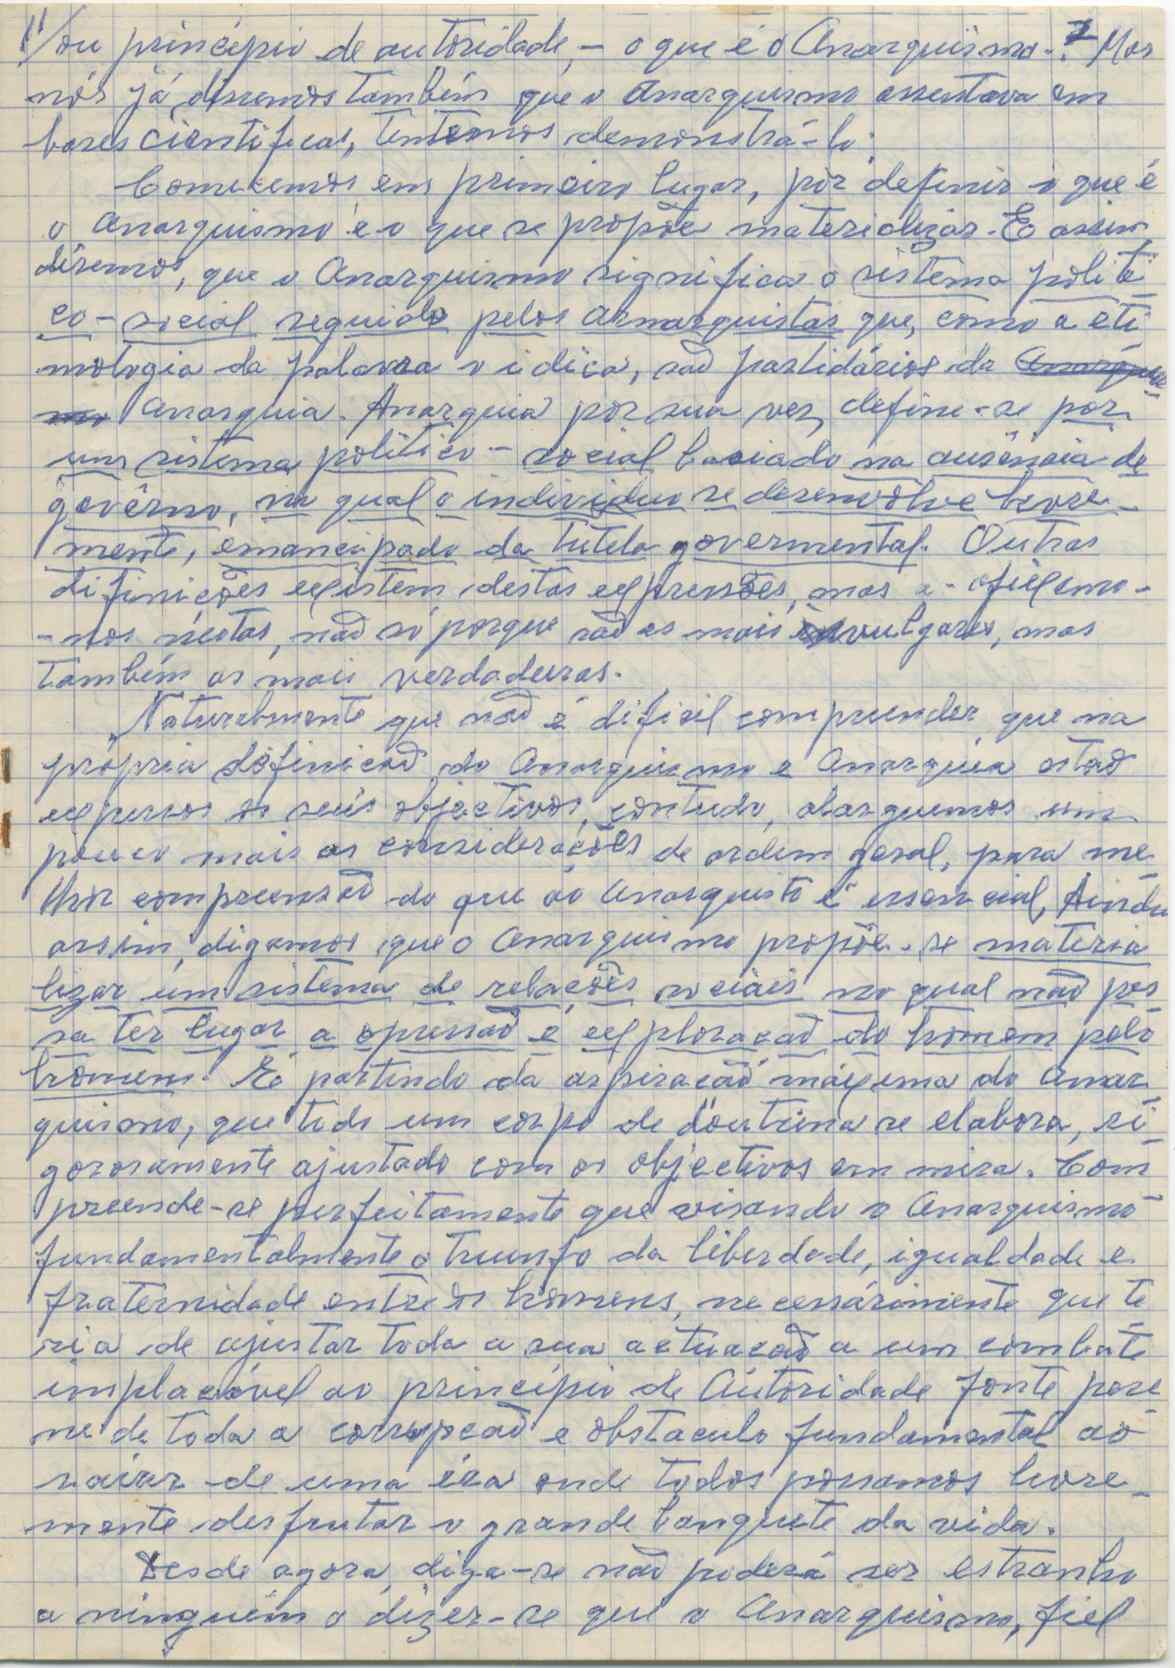 ou princípio de autoridade, - o que é o Anarquismo.? Mas
nós já dissemos também que o Anarquismo assentava em
bases cientificas, tentemos demonstrá-lo.
Comecemos em primeiro lugar, por definir o que é
o Anarquismo e o que se propõe materializar. E assim
diremos, que o Anarquismo significa o sistema politi
co-social seguido pelos Anarquistas que, como a eti
mologia da palavra o idica, são partidários da
Anarquia. Anarquia por sua vez, define-se por
um sistema politico-social baciado na ausência de
govêrno, no qual o individuo se desenvolve livre-
mente, emancipado da tutela govermental. Outras
difinições existem destas expressões, mas a-fixemo-
-nos nestas, não só porque são as mais vulgares, mas
também as mais verdadeiras.
Naturalmente que não é dificil compreender, que na
própria difinição do Anarquismo e Anarquia estão
expressos os seus objectivos, contudo, alarguemos um
pouco mais as considerações de ordem geral, para me-
lhor compreensão do que ao Anarquista é essencial. Ainda
assim, digamos que o Anarquismo propõe-se materia
lizar um sistema de relações sociais no qual não pos
sa ter lugar a opressão e exploração do homem pelo
homem. E é partindo da aspiração máxima do Anar
quismo, que todo um corpo de doutrina se elabora, ri-
gorosamente ajustado com os objectivos em mira. Com
preende-se perfeitamente que visando o Anarquismo
fundamentalmente o triunfo da liberdade, igualdade e
fraternidade entre os homens, necessáriamente que te
ria de ajustar toda a sua actuação a um combate
implacável ao princípio de Autoridade fonte pere
ne de toda a corrupção e obstaculo fundamental ao
raiar de uma éra onde todos possamos livre-
mente desfrutar o grande banquete da vida.
Desde agora, diga-se não poderá ser estranho
a ninguém o dizer-se que o Anarquismo, fiel